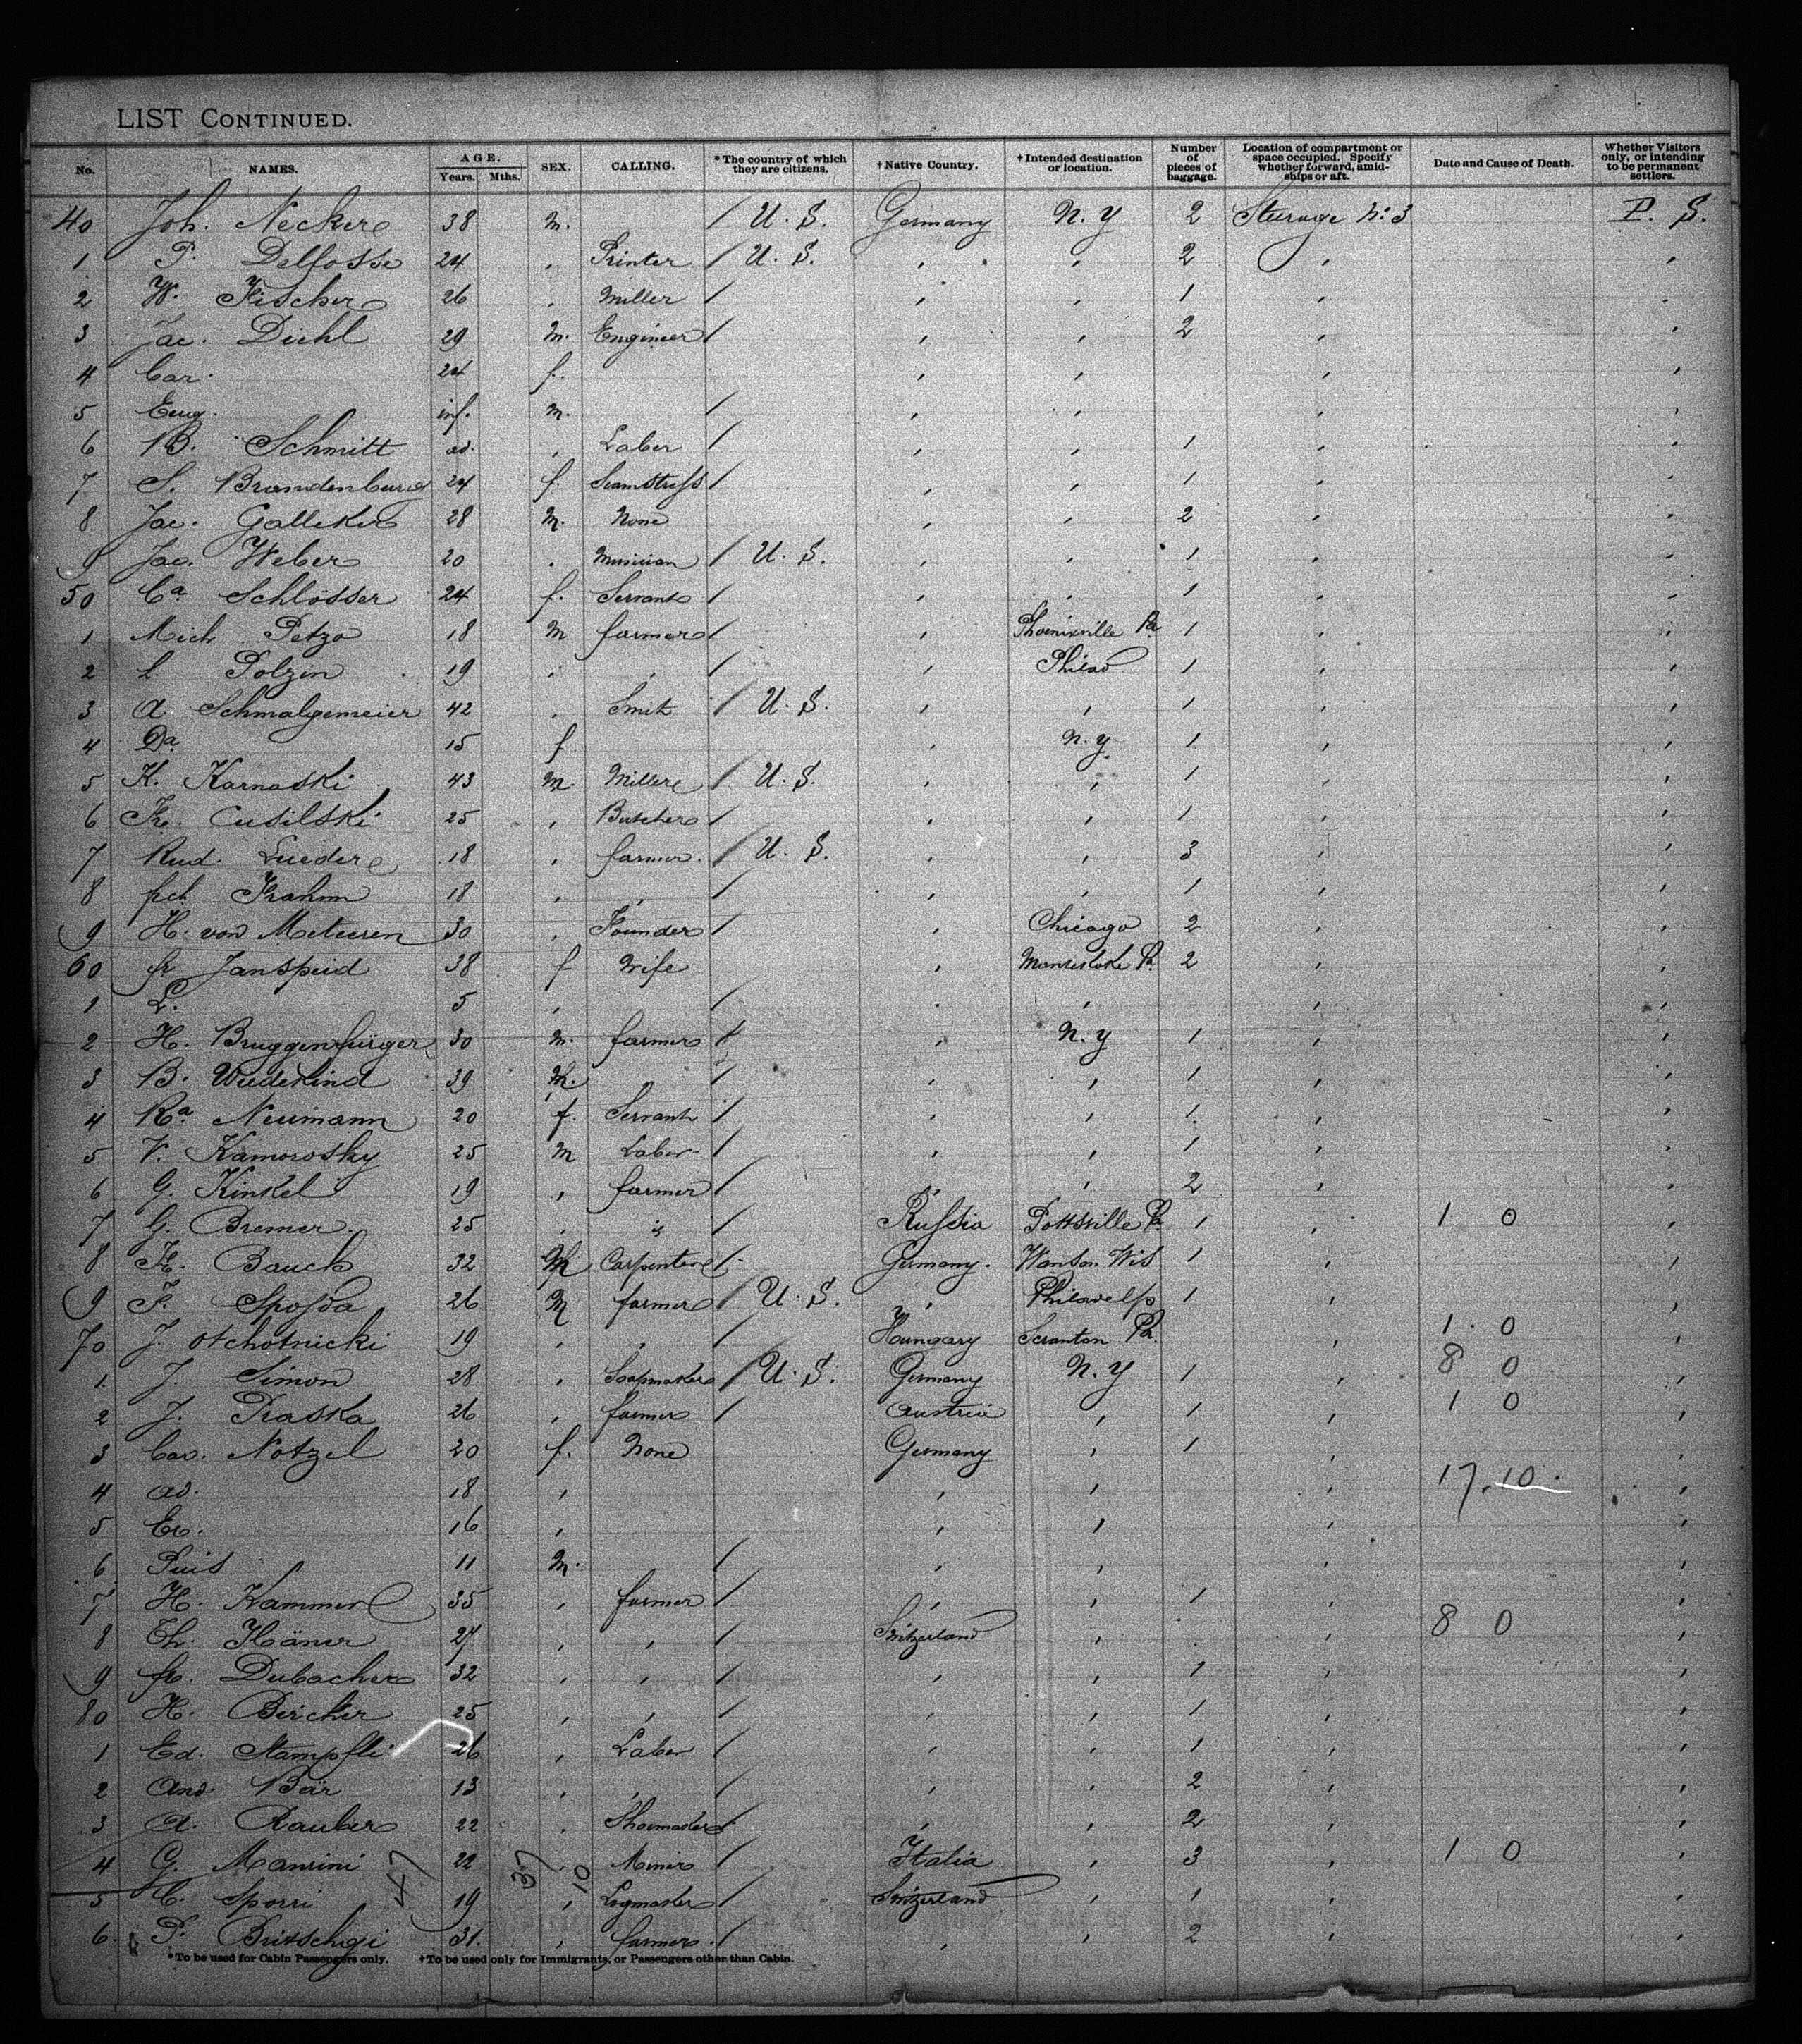 LIST CONTINUED.
No. NAMES. AGE. Years. Mths. SEX. CALLING. *The country of which they are citizens. †Native Country. †Intended destination or location. Number of pieces of baggage. Location of compartment or space occupied. Specify whether forward, amidships or aft. Date and Cause of Death. Whether Visitors only, or intending to be permanent settlers.
40 Joh. Necker 38 m. / U. S. Germany N. Y 2 Steerage No: 3 P. S.
1 P. Delfosse 24 , Printer / U. S. , , 2 , ,
2 W. Fischer 26 , Miller / , , 1 , ,
3 Jac. Diehl 29 m. Engineer / , , 2 , ,
4 Car. 24 f. , , , ,
5 Eug. inf. m. / , , , ,
6 B. Schmitt , Laber / , , 1 , ,
7 S. Brandenburg 24 f. Seamstress / , , 1 , ,
8 Jac. Galleker 28 m. None , , 2 , ,
9 Jac. Weber 20 , Musician / U. S. , , 1 , ,
50 Ca. Schlösser 24 f. Servant / , , 1 , ,
1 Mich Petzo 18 m farmer / , Phoenixville Pa 1 , ,
2 L. Polzin 19 , , / , Philad 1 , ,
3 A. Schmalgemeier 42 , Smit / U. S. , , 1 , ,
4 Da. 15 f , N. Y 1 , ,
5 K. Karnaski 43 m. Miller / U. S. , , 1 , ,
6 Fr. Cusilski 25 , Butcher / , , 1 , ,
7 Rud. Lueder 18 , farmer / U. S. , , 3 , ,
8 Frahm 18 , , / , , 1 , ,
9 H. von Meteeren 30 , Founder / , Chicago 2 , ,
60 fr Janspeid 38 f Wife , Pa. 2 , ,
1 L. 5 , / , , , ,
2 H. Bruggenbürger 30 m. farmer / , N. Y 1 , ,
3 B. Wiedekind 39 m. / , , 1 , ,
4 Ra. Neumann 20 f. Servant / , , 1 , ,
5 V. Kamorosky 25 m Laber / , , 1 , ,
6 G. Kinkel 19 , farmer / , , 2 , ,
7 G. Bremer 25 , , / Russia Pottsville Pa 1 , 1 0 ,
8 F. Bauck 32 m Carpenter / Germany. Wis 1 , ,
9 F. Sposda 26 m farmer / U. S. , Philadelp 1 , ,
70 J. Ochotnicki 19 , , / Hungary Scranton Pa. , 1 0 ,
1 J. Simon 28 , Soapmaker / U. S. Germany N. Y 1 , 8 0 ,
2 J. Praska 26 , farmer / Austria , 1 , 1 0 ,
3 Car. Notzel 20 f. None Germany , 1 , ,
4 Ad. 18 , , , , 17. 10. ,
5 Er. 16 , , , , ,
6 Puis 11 m. / , , , ,
7 H. Kammer 35 , farmer / , , 1 , ,
8 Th. Häner 27 , , / Switzerland , , 8 0 ,
9 fr. Dubacher 32 , , / , , 1 , ,
80 H. Bircher 25 , , / , , 1 , ,
1 Ed. Stampfli 26 , Laber / , , 1 , ,
2 And. Bär 13 , , / , , 2 , ,
3 A. Rauber 22 , Shoemaker / , , 2 , ,
4 G. Mansini 22 , Miner / Italia , 3 , 1 0 ,
5 C. Sporri 19 , / Switzerland , 1 , ,
6 P. Britschgi 31. , farmer / , , 2 , ,
47 37 10
*To be used for Cabin Passengers only. †To be used only for Immigrants, or Passengers other than Cabin.